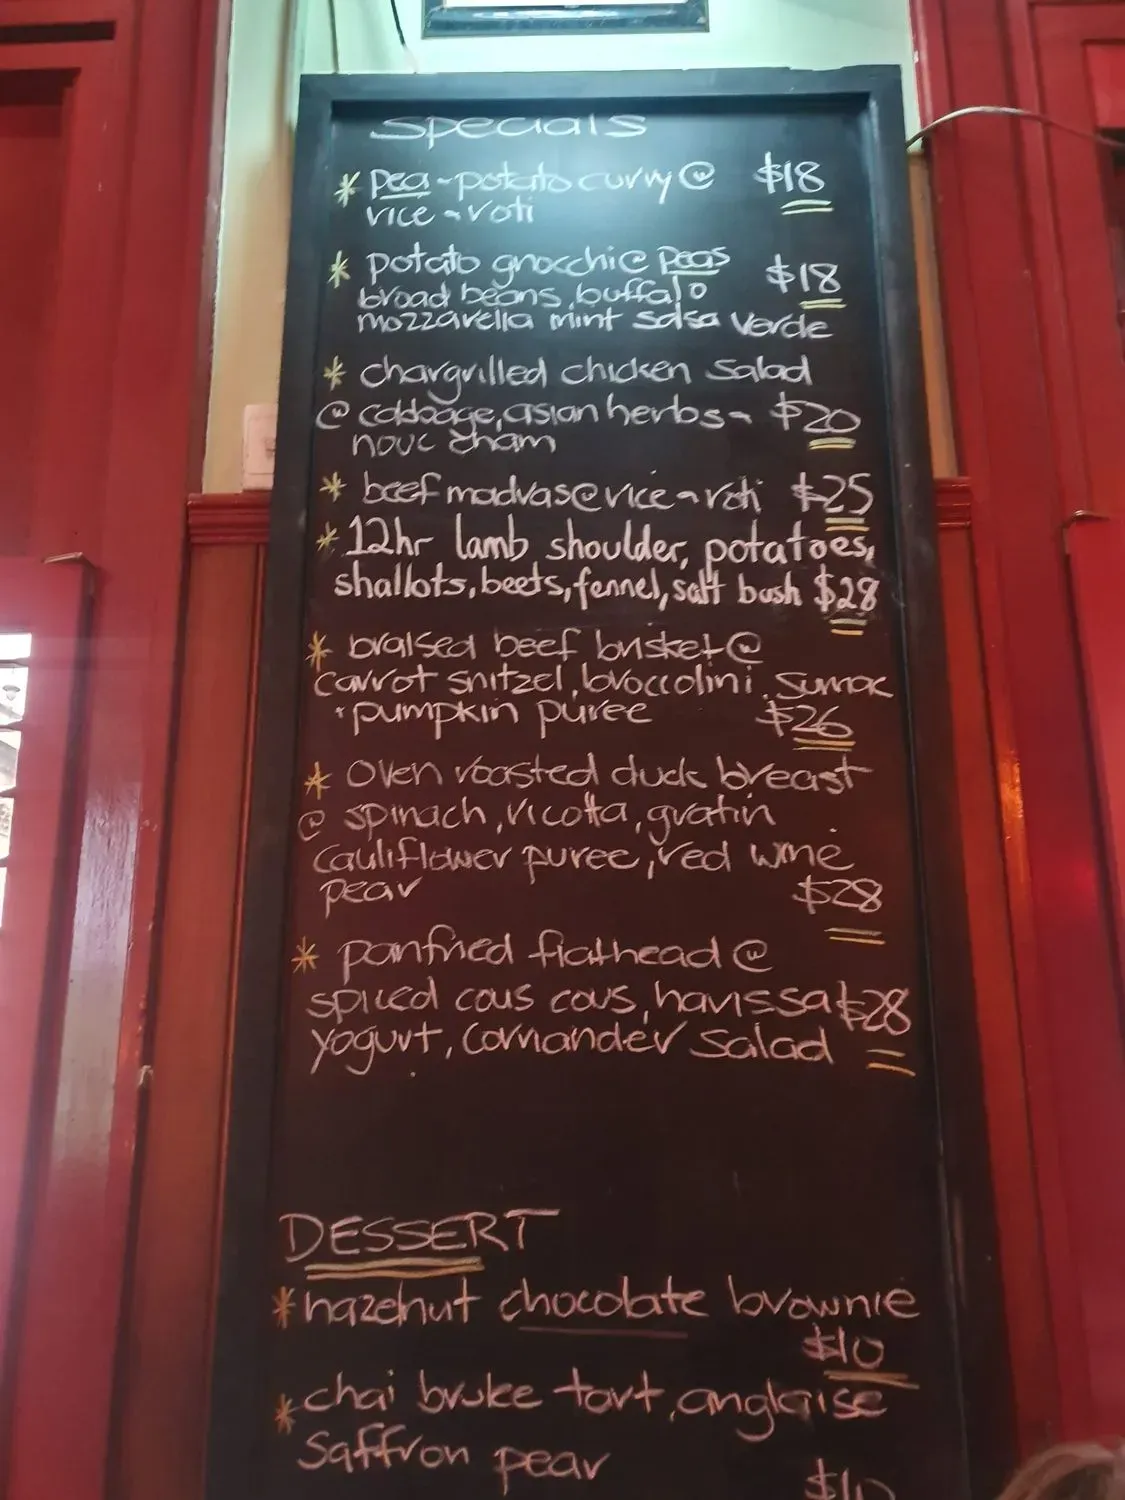 specials
* pea - potato curry @ $18
rice - roti
* potato gnocchi @ peas $18
broad beans, buffalo
mozzarella mint salsa verde
* chargrilled chicken salad
@ cabbage, asian herbs - $20
nouc cham
* beef madras @ rice - roti $25
* 12hr lamb shoulder, potatoes,
shallots, beets, fennel, salt bush $28
* braised beef brisket @
carrot snitzel, broccolini, sumac
+ pumpkin puree $26
* oven roasted duck breast
@ spinach, ricotta, gratin
cauliflower puree, red wine
pear $28
* panfried flathead @
spiced cous cous, harissa $28
yogurt, corriander salad
DESSERT
* hazelnut chocolate brownie
$10
* chai brulee tart, anglaise
saffron pear
$10